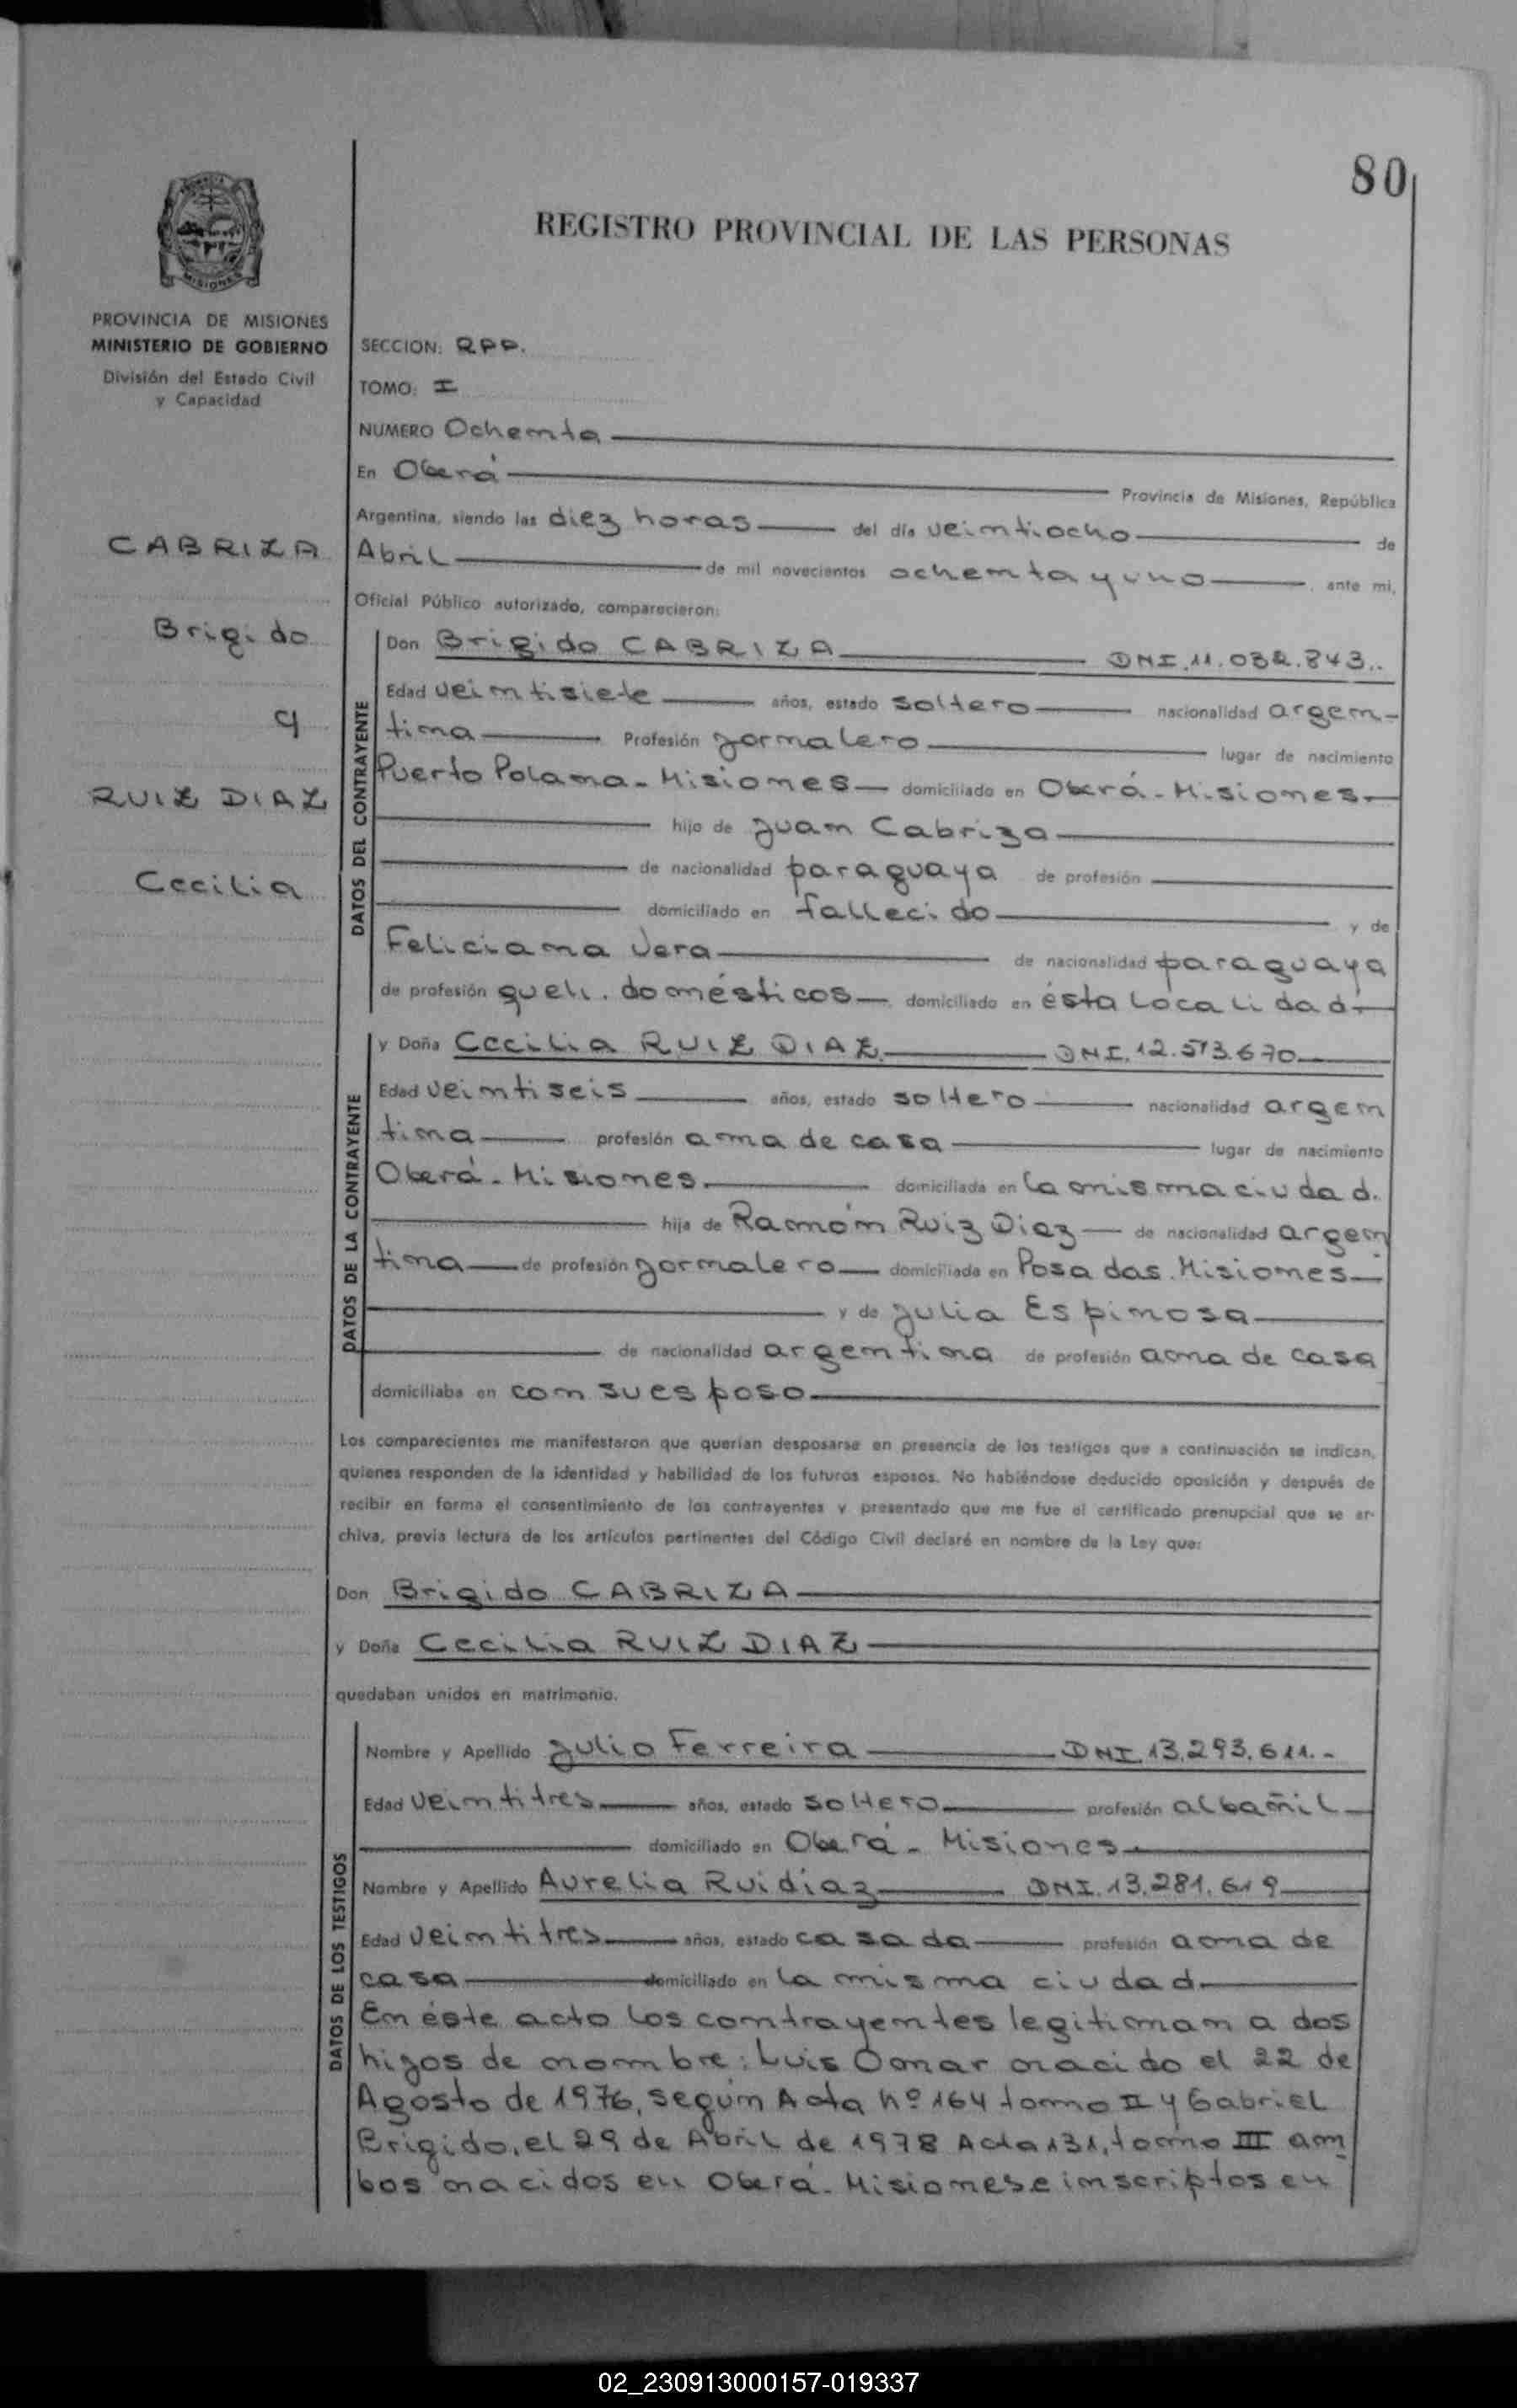 80
REGISTRO PROVINCIAL DE LAS PERSONAS
MISIONES
PROVINCIA DE MISIONES
MINISTERIO DE GOBIERNO
División del Estado Civil
y Capacidad
CABRIZA
Brigido
y
RUIZ DIAZ
Cecilia
SECCION: RPP.
TOMO: I
NUMERO Ochenta
En Oberá Provincia de Misiones, República
Argentina, siendo las diez horas del día veintiocho de
Abril de mil novecientos ochenta y uno, ante mi,
Oficial Público autorizado, comparecieron:
DATOS DEL CONTRAYENTE
Don Brigido CABRIZA DNI. 11.032.843..
Edad veintisiete años, estado soltero nacionalidad argen-
tina Profesión jornalero lugar de nacimiento
Puerto Polana - Misiones domiciliado en Oberá - Misiones.
hijo de Juan Cabriza
de nacionalidad paraguaya de profesión
domiciliado en fallecido y de
Feliciana Vera de nacionalidad paraguaya
de profesión queh. domésticos domiciliado en ésta localidad.
DATOS DE LA CONTRAYENTE
y Doña Cecilia RUIZ DIAZ. DNI. 12.513.670
Edad veintiseis años, estado soltero nacionalidad argen
tina profesión ama de casa lugar de nacimiento
Oberá - Misiones. domiciliada en la misma ciudad.
hija de Ramón Ruiz Diaz de nacionalidad argen
tina de profesión jornalero domiciliada en Posadas. Misiones
y de Julia Espinosa
de nacionalidad argentina de profesión ama de casa
domiciliaba en con su esposo
Los comparecientes me manifestaron que querian desposarse en presencia de los testigos que a continuación se indican,
quienes responden de la identidad y habilidad de los futuros esposos. No habiéndose deducido oposición y después de
recibir en forma el consentimiento de los contrayentes y presentado que me fue el certificado prenupcial que se ar-
chiva, previa lectura de los artículos pertinentes del Código Civil declaré en nombre de la Ley que:
Don Brigido CABRIZA
y Doña Cecilia RUIZ DIAZ
quedaban unidos en matrimonio.
DATOS DE LOS TESTIGOS
Nombre y Apellido Julio Ferreira DNI. 13.293.611.-
Edad veintitres años, estado soltero profesión albañil
domiciliado en Oberá - Misiones
Nombre y Apellido Aurelia Ruidíaz DNI. 13.281.619
Edad veintitres años, estado casada profesión ama de
casa domiciliado en la misma ciudad
En éste acto los contrayentes legitiman a dos
hijos de nombre: Luis Omar nacido el 22 de
Agosto de 1976, según Acta nº 164 tomo II y Gabriel
Brigido, el 29 de Abril de 1978 Acta 131, tomo III am
bos nacidos en Oberá - Misiones e inscriptos en
02_230913000157-019337